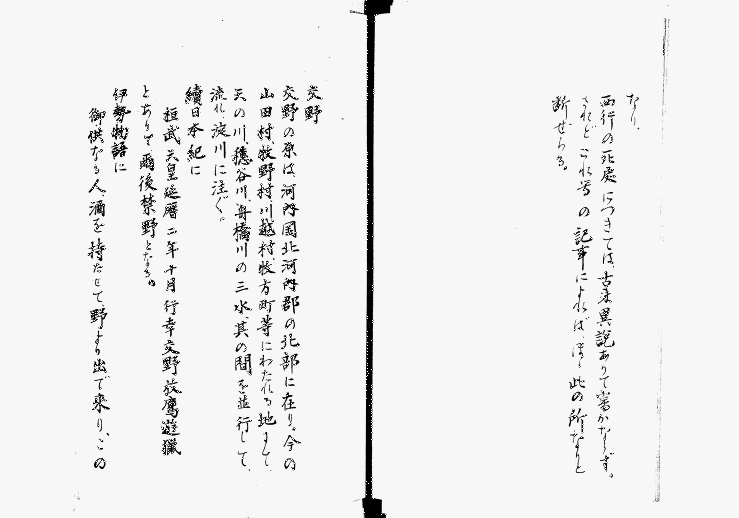 なり。
西行の死処につきては、古来異説ありて審かならず。
されどこれ等の記事によれば、ほゞ此の所なりと
断ぜらる。
交野
交野の原は、河内国北河内郡の北部に在り。今の
山田村、牧野村、川越村、牧方町等にわたれる地にして、
天の川、穂谷川、舟橋川の三水、其の間を並行して、
流れ、淀川に注ぐ。
續日本紀に
桓武天皇延暦二年十月行幸交野放鷹遊獵
とありて、爾後禁野となる。
伊勢物語に
御供なる人、酒を持たせて、野より出で来り、この